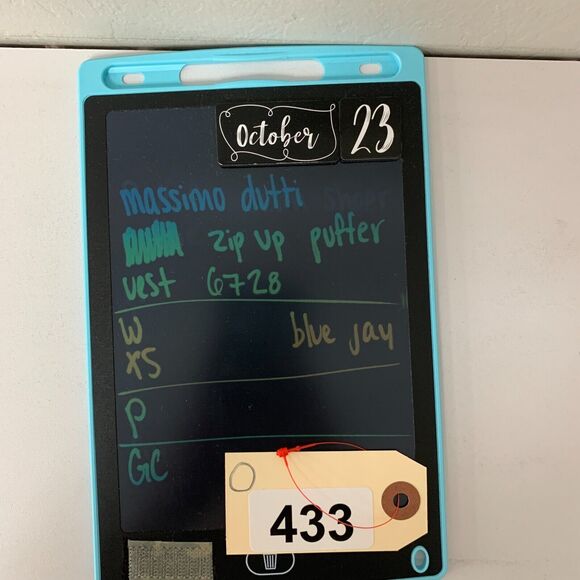 October 23
massimo dutti
zip up puffer
vest 6728
W
XS blue jay
P
GC
433